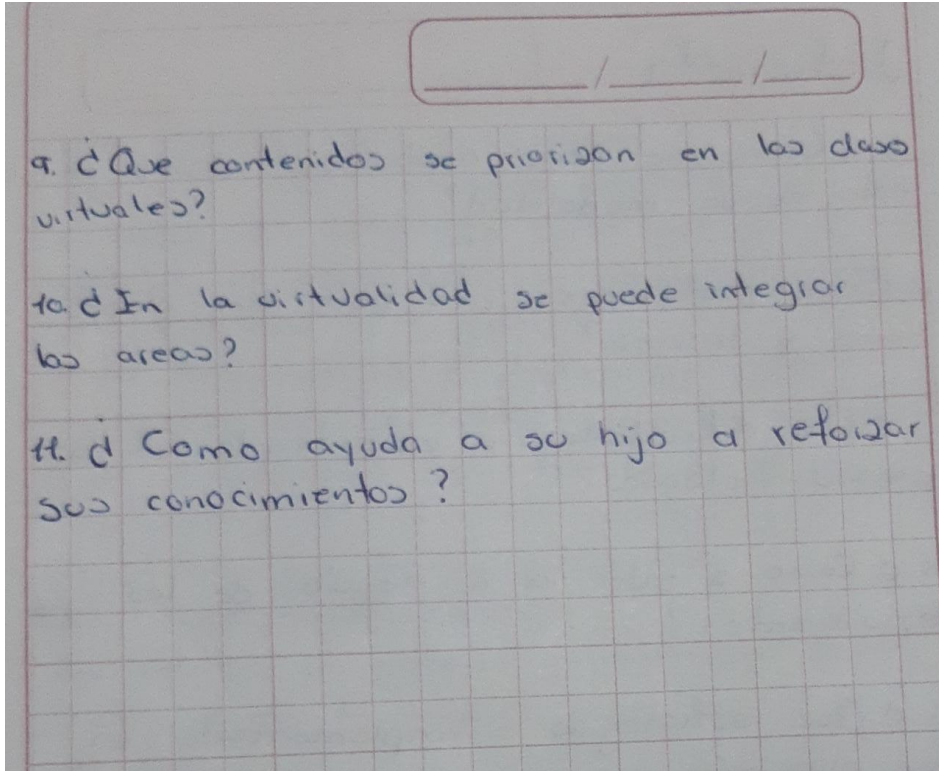 9. ¿Que contenidos se priorizan en las clases
virtuales?
10. ¿En la virtualidad se puede integrar
las areas?
11. ¿Como ayuda a su hijo a reforzar
sus conocimientos?